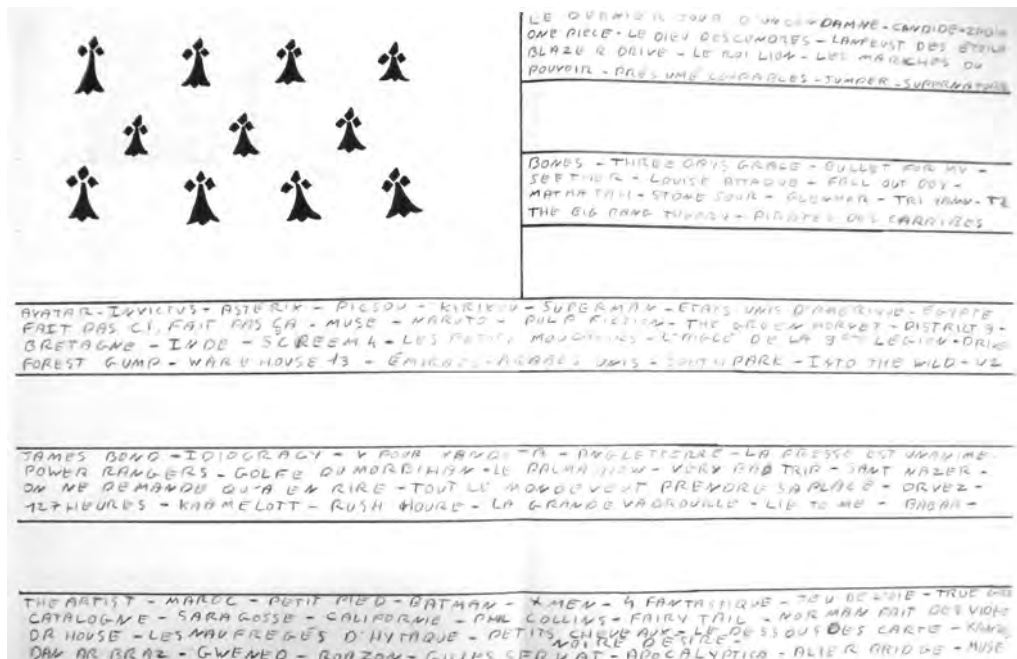 LE DERNIER JOUR D'UN CONDAMNE - CANDIDE - ZADIG
ONE PIECE - LE DIEU DES CENDRES - LANFEUST DES ETOILES
BLAZER DRIVE - LE ROI LION - LES MARCHES DU
POUVOIR - PRESUME COUPABLES - JUMPER - SUPERNATURE
BONES - THREE DAYS GRACE - BULLET FOR MY -
SEETHER - LOUISE ATTAQUE - FALL OUT BOY -
MATMATAH - STONE SOUR - GLENMOR - TRI YANN - T2
THE BIG BANG THEORY - PIRATES DES CARRAIBES
AVATAR - INVICTUS - ASTERIX - PICSOU - KIRIKOU - SUPERMAN - ETATS UNIS D'AMERIQUE - EGYPTE
FAIT PAS CI, FAIT PAS ÇA - MUSE - NARUTO - PULP FICTION - THE GREEN HORNET - DISTRICT 9 -
BRETAGNE - INDE - SCREEM 4 - LES PETITS MOUCHOIRS - L'AIGLE DE LA 9eme LEGION - DRIVE
FOREST GUMP - WAREHOUSE 13 - ÉMIRATS-ARABES UNIS - SOUTH PARK - INTO THE WILD - U2
JAMES BOND - IDIOCRACY - V POUR VANDETTA - ANGLETERRE - LA PRESSE EST UNANIME
POWER RANGERS - GOLFE DU MORBIHAN - LE PALMASHOW - VERY BAD TRIP - SANT NAZER -
ON NE DEMANDE QU'A EN RIRE - TOUT LE MONDE VEUT PRENDRE SA PLACE - ORVEZ -
127 HEURES - KAAMELOTT - RUSH HOURE - LA GRANDE VADROUILLE - LIE TO ME - BABAR -
THE ARTIST - MAROC - PETIT PIED - BATMAN - X MEN - 4 FANTASTIQUE - JEU DE L'OIE - TRUE GRIT
CATALOGNE - SARAGOSSE - CALIFORNIE - PHIL COLLINS - FAIRY TAIL - NORMAN FAIT DES VIDEO
DR HOUSE - LES NAUFREGÉS D'HYTAQUE - PETITS CHEVEAUX - LE DESSOUS DES CARTE -
NOIRE DESIRE -
DAN AR BRAZ - GWENED - ROAZON - GILLES SERVAT - APOCALYPTICA - ALTER BRIDGE - MUSE